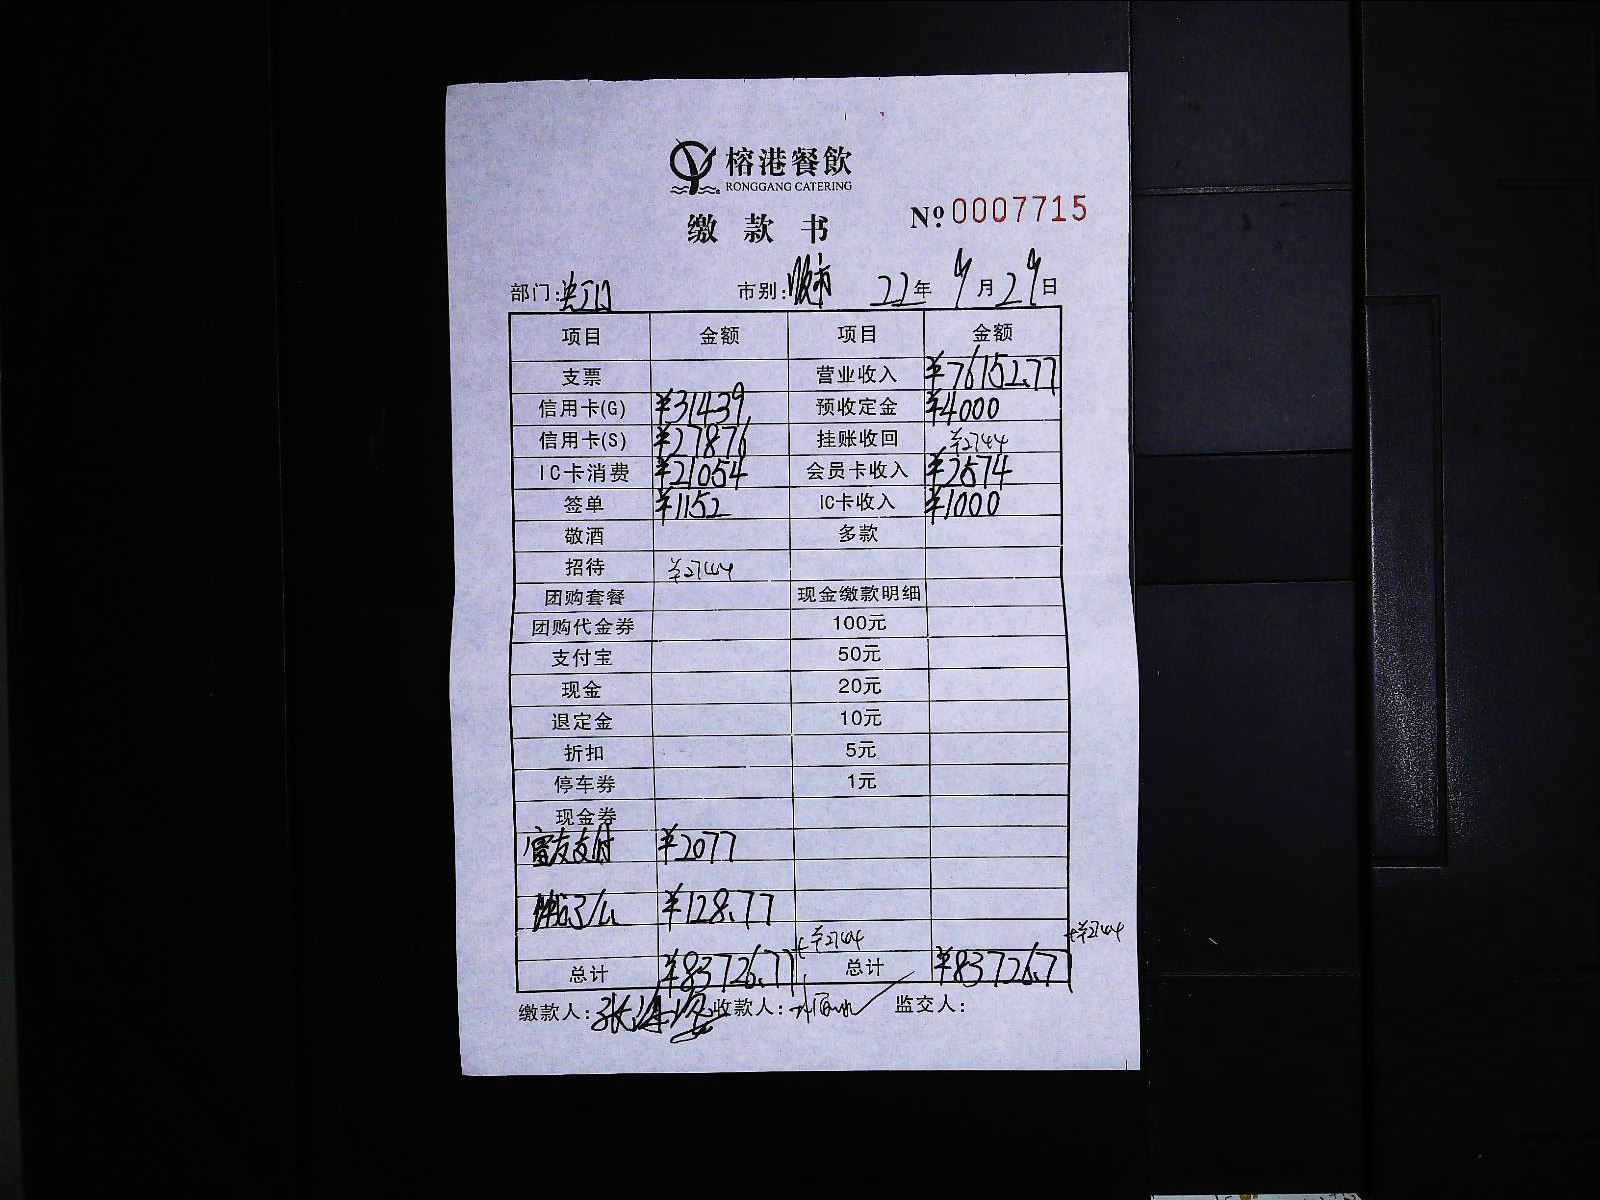 榕港餐飲
RONGGANG CATERING
缴款书
№ 0007715
部门:虹口 市别:晚市 22年9月29日
项目 金额 项目 金额
支票 营业收入 ¥76152.77
信用卡(G) ¥31439 预收定金 ¥4000
信用卡(S) ¥27876 挂账收回 ¥2744
IC卡消费 ¥21054 会员卡收入 ¥2574
签单 ¥1152 IC卡收入 ¥1000
敬酒 多款
招待 ¥2744
团购套餐 现金缴款明细
团购代金券 100元
支付宝 50元
现金 20元
退定金 10元
折扣 5元
停车券 1元
现金券
富友支付 ¥2077
¥128.77
+¥2744 +¥2744
总计 ¥83726.77 总计 ¥83726.77
缴款人:张 收款人: 监交人: